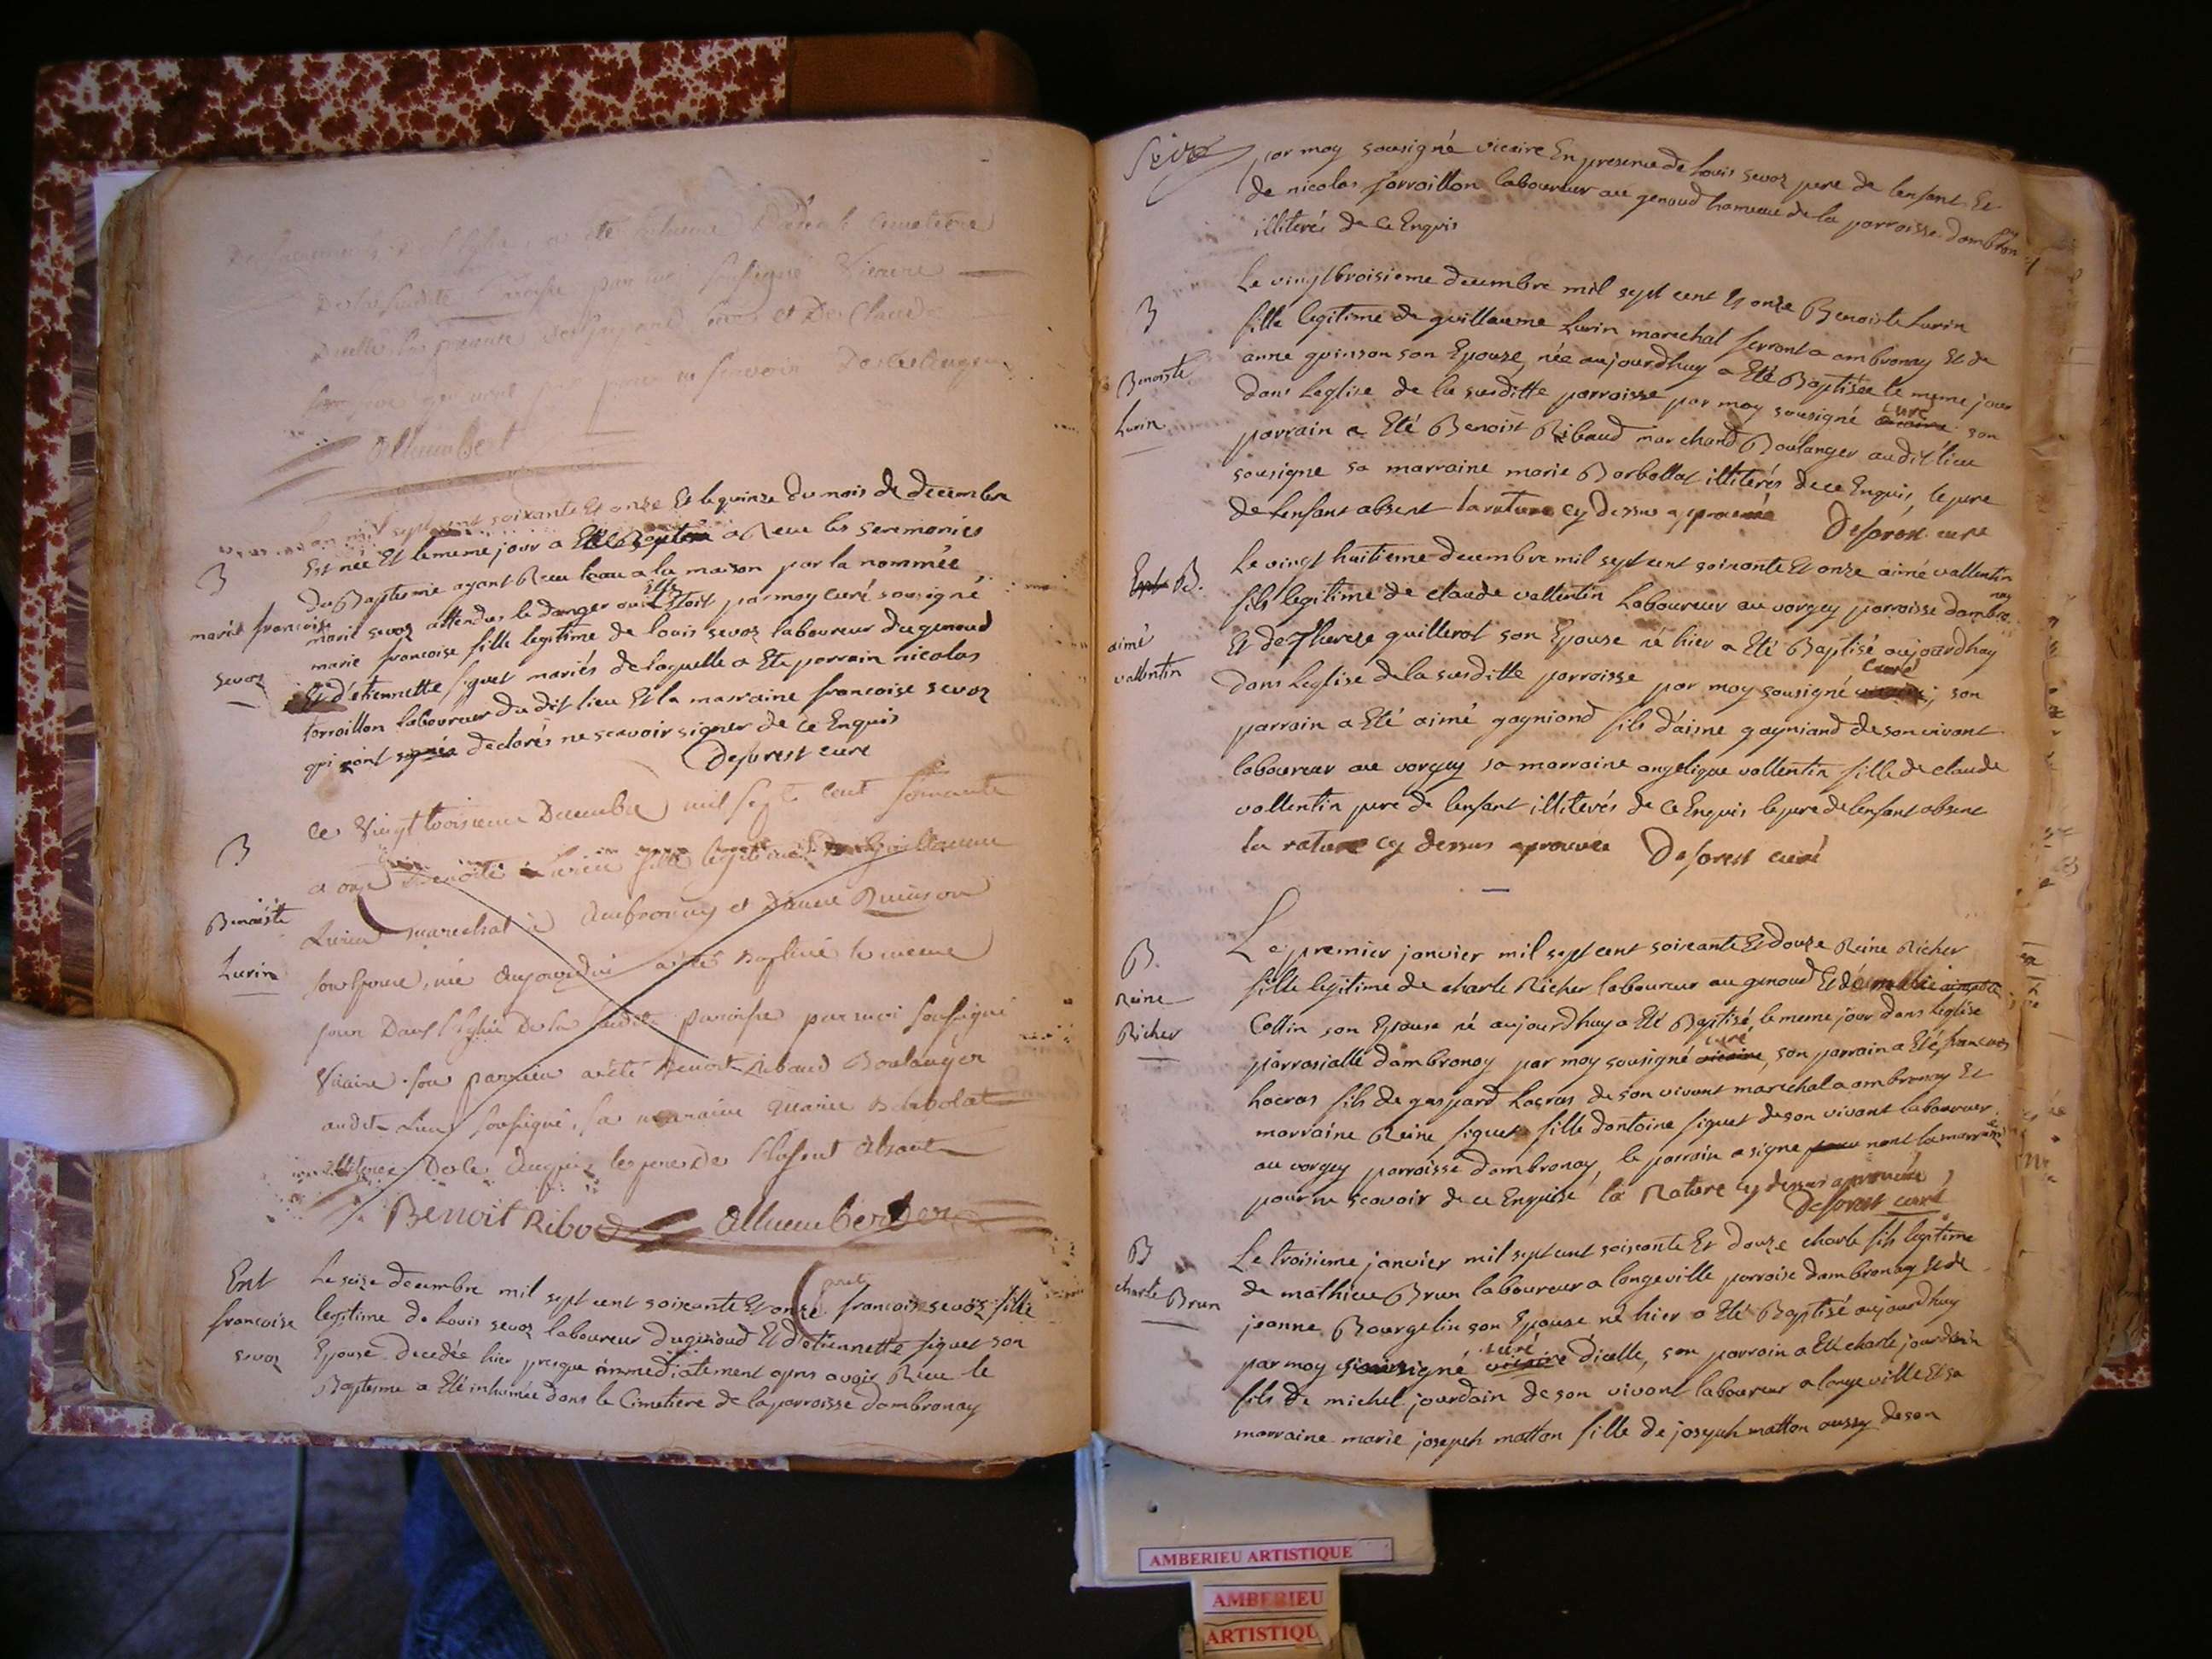 a été inhumé Dans le Cimetiere
De la susdite Paroisse par moi soussigné Vicaire
et De Claude
allumbert
mil sept cent soixante Et onze Et le quinze du mois de decembre
Est née Et le meme jour a Eté Baptisée a Receu les seremonies
B
du Baptesme ayant Receu leau a la maison par la nommée
marie francoise
marie sevoz attendus le danger ou Elle Etoit par moy curé sousigné
marie francoise fille legitime de louis sevoz laboureur du genoud
sevoz
Et d'etiennette siquet mariés de laquelle a Ete parrain nicolas
torroillon laboureur du dit lieu Et la marraine francoise sevoz
qui n'ont signés declarés ne scavoir signer de ce Enquis
Deforest curé
B
le Vingt troisieme Decembre mil sept cent soixante
et onze Benoite Lurin fille legitime De Guillaume
Benoiste
Lurin marechal à Ambronay et D'anne Quinson
Lurin
son Epouse, née aujourdhui a été Baptisée le meme
jour Dans l'Eglise De la susdite paroisse par moi soussigné
Vicaire son parrain a été Benoit Ribaud Boulanger
audit Lieu soussigné, sa maraine Marie Barbolat
illiterée De ce Enquis le pere De l'Enfant Absent
Benoit Ribod allumbert
Ent
Le seize decembre mil sept cent soixante Et onze francoise sevoz fille
francoise
legitime de Louis sevoz laboureur du genoud Et d'etiennette siquet son
sevoz
Epouse decedée hier presque immediatement apres avoir Receu le
Baptesme a Eté inhumée dans le Cimetiere de la parroisse dambronay
par moy sousigné vicaire En presence de Louis sevoz pere de lenfant Et
de nicolas torroillon laboureur au genoud hameau de la parroisse dambronay
illiterés de ce Enquis
B
Le vingt troisieme decembre mil sept cent Et onze Benoiste Lurin
fille legitime de guillaume Lurin marechal ferrant a ambronay Et de
Benoiste
anne quinson son Epouze, née aujourdhuy a Eté Baptisée le meme jour
dans Leglise de la susditte parroisse par moy sousigné curé vicaire son
Lurin
parrain a Eté Benoist Ribaud marchand Boulanger audit lieu
sousigne sa marraine marie Barbollat illiterés de ce Enquis, le pere
de Lenfant absent la rature cy dessus aprouvée Deforest curé
Ent B.
Le vingt huitieme decembre mil sept cent soixante Et onze aimé vallentin
fils legitime de claude vallentin Laboureur au vorgey parroisse dambronay
aimé
Et de Therese guillerot son Epouse né hier a Eté Baptisé aujourdhuy
vallentin
dans Leglise de la susditte parroisse par moy sousigné curé vicaire, son
parrain a Eté aimé gagniand fils d'aime gagniand de son vivant
laboureur au vorgey sa marraine angelique vallentin fille de claude
vallentin pere de lenfant illiterés de ce Enquis le pere de lenfant absent
la rature cy dessus aprouvée Deforest curé
B.
Le premier janvier mil sept cent soixante Et douze Reine Richer
Reine
fille legitime de charle Richer laboureur au genoud Et de
Richer
Collin son Epouse né aujourdhuy a Eté Baptisé, le meme jour dans leglise
parrosialle dambronay par moy sousigné curé vicaire, son parrain a Eté francois
Lacras fils de gaspard Lacras de son vivant marechal a ambronay Et
marraine Reine siquet fille dantoine siquet de son vivant laboureur
au vorgey parroisse dambronay, le parrain a signe nont la marraine
pour ne scavoir de ce Enquise la Rature cy dessus aprouvée
Deforest curé
B
Le troisieme janvier mil sept cent soixante Et douze charle fils legitime
charle Brun
de mathieu Brun laboureur a longeville parroise dambronay Et de
jeanne Bourgelin son Epouse né hier a Eté Baptisé aujourdhuy
par moy sousigné curé vicaire d'icelle, son parrain a Eté charle jourdain
fils de michel jourdain de son vivant laboureur a longeville Et sa
marraine marie joseph matton fille de joseph matton aussy de son
AMBERIEU ARTISTIQUE
AMBERIEU
ARTISTIQU